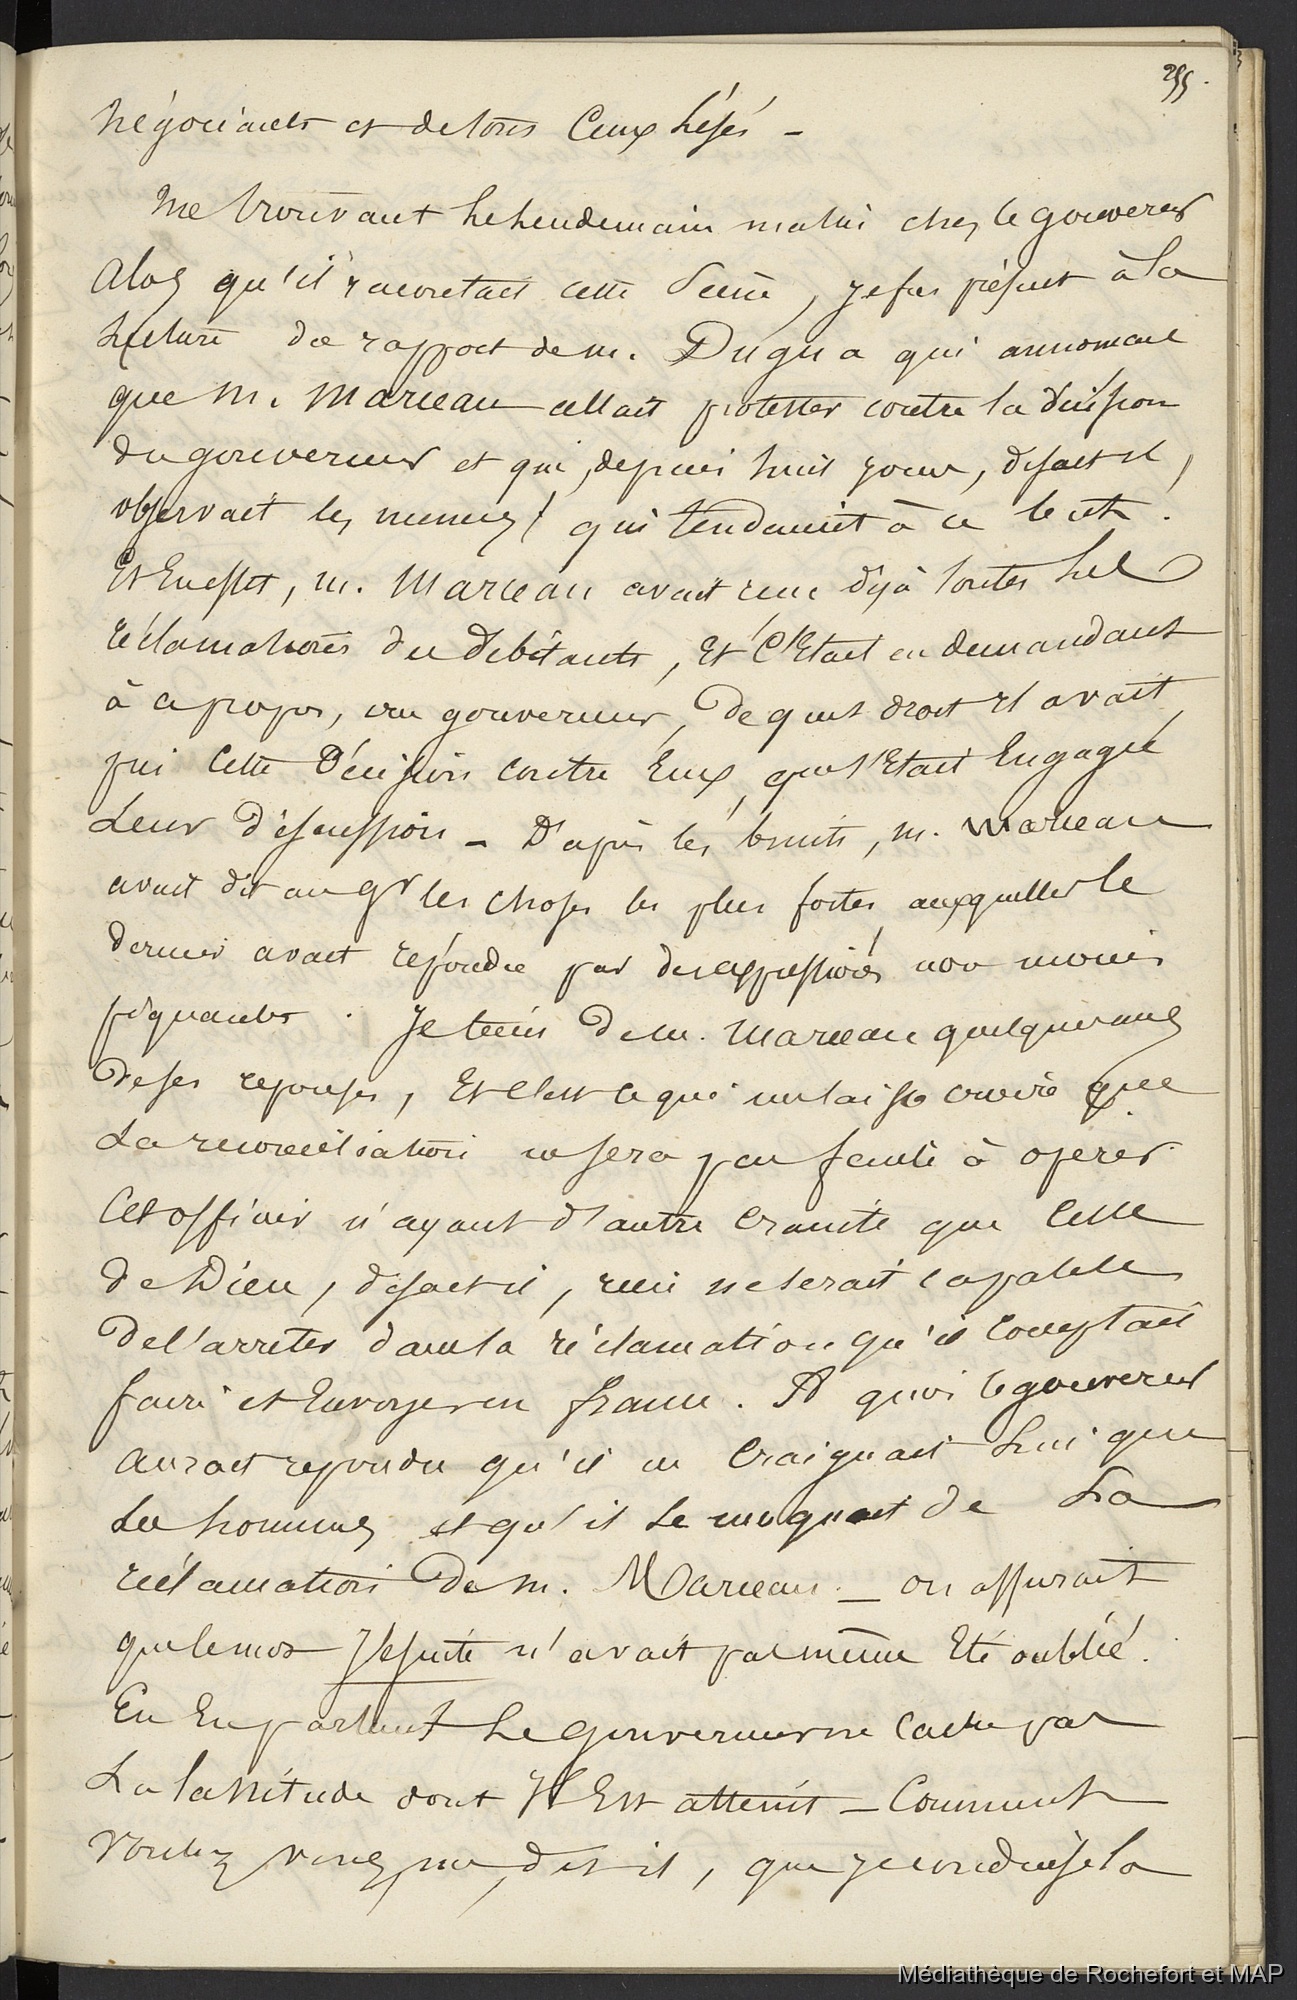 255.
négociants et de tous Ceux lésés -
Me trouvant le lendemain matin chez le gouverneur
alors qu'il racontait cette Scène, je fus présent à la
lecture du rapport de m. Dugua qui annoncait
que m. Marceau allait protester contre la décision
du gouverneur et qui, depuis huit jours, disait il,
observait les menées qui tendaient à ce but.
Et En effet, m. Marceau avait reçu déjà toutes les
réclamations des débitants, Et C'Etait en demandant
à ce propos, au gouverneur, de quel droit il avait
pris Cette Décision contre Eux, que s'Etait Engagée
Leur discussion - D'après les bruits, m. Marceau
avait dit au Gr les choses les plus fortes, auxquelles le
dernier avait répondu par des expressions non moins
piquantes. Je tiens de m. Marceau quelques unes
de ses réponses, Et c'est ce qui me laisse croire que
La réconciliation ne sera pas facile à opérer
Cet officier n'ayant d'autre crainte que Celle
de Dieu, disait il, rien ne serait capable
de l'arrêter dans la réclamation qu'il comptait
faire et Envoyer en france. A quoi le gouverneur
aurait répondu qu'il ne Craignait Lui que
Les hommes et qu'il se moquait de La
réclamation de m. Marceau - on assurait
que le mot Jésuite n'avait pas même Eté oublié.
En En parlant Le Gouverneur ne cache pas
La lassitude dont Il Est atteint - Comment
voulez vous, me dit il, que je conduise la
Médiathèque de Rochefort et MAP